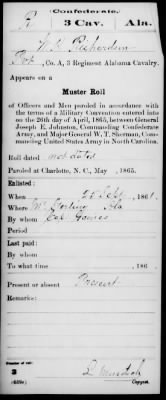 Confederate.
R | 3 Cav. | Ala.
Richardson
Pvt, Co. A, 3 Regiment Alabama Cavalry.
Appears on a
Muster Roll
of Officers and Men paroled in accordance with
the terms of a Military Convention entered into
on the 26th day of April, 1865, between General
Joseph E. Johnston, Commanding Confederate
Army, and Major General W. T. Sherman, Com-
manding United States Army in North Carolina.
Roll dated not dated
Paroled at Charlotte, N. C., May , 1865.
Enlisted:
When 25 Sept, 1861.
Where Mt Sterling Ala
By whom Capt Gaines
Period
Last paid:
By whom
To what time , 186 .
Present or absent Present
Remarks:
Number of roll:
3
(639c)
Copyist.